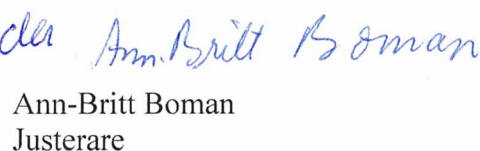 Ann-Britt Boman
Ann-Britt Boman
Justerare